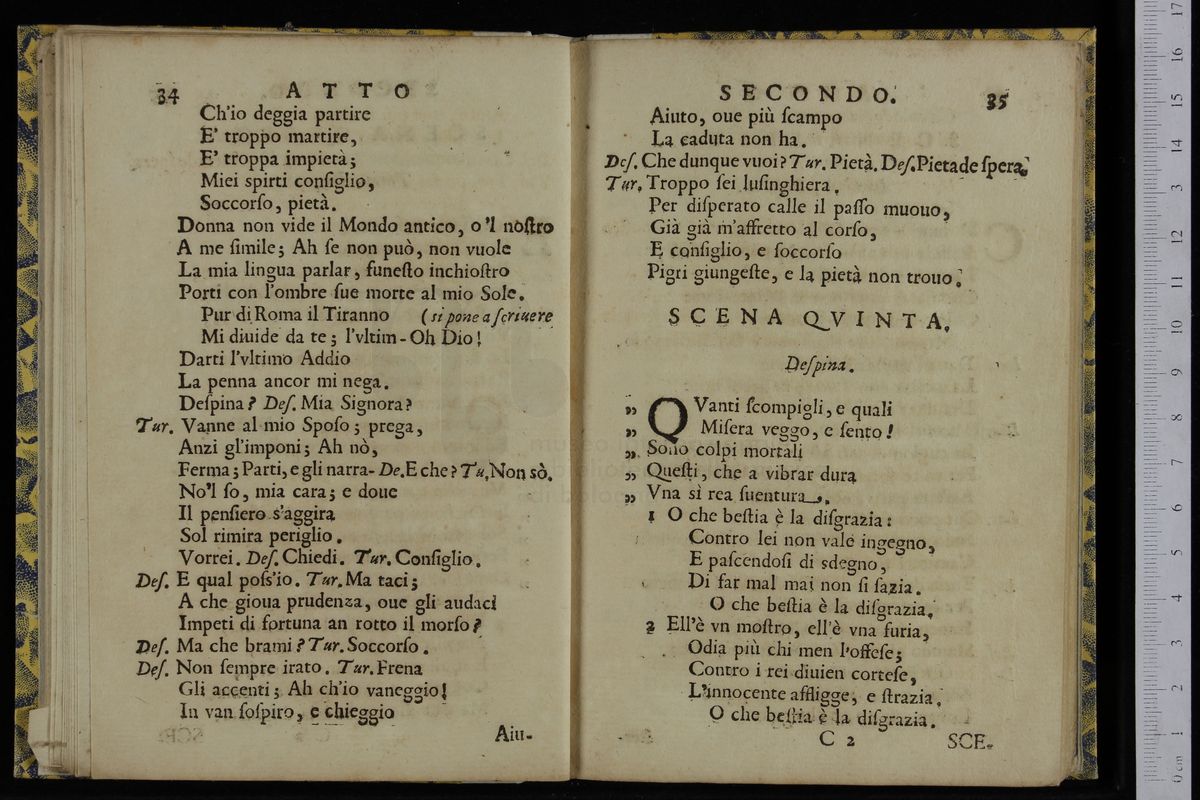 34 ATTO
Ch'io deggia partire
E' troppo martire,
E' troppa impietà;
Miei spirti conſiglio,
Soccorſo, pietà.
Donna non vide il Mondo antico, o 'l noſtro
A me ſimile; Ah ſe non può, non vuole
La mia lingua parlar, funeſto inchioſtro
Porti con l'ombre ſue morte al mio Sole.
Pur di Roma il Tiranno (si pone a ſcriuere
Mi diuide da te; l'vltim-Oh Dio!
Darti l'vltimo Addio
La penna ancor mi nega.
Deſpina? Deſ. Mia Signora?
Tur. Vanne al mio Spoſo; prega,
Anzi gl'imponi; Ah nò,
Ferma; Parti, e gli narra- De. E che? Tu. Non sò.
No'l ſo, mia cara; e doue
Il penſiero s'aggira
Sol rimira periglio.
Vorrei. Deſ. Chiedi. Tur. Conſiglio.
Deſ. E qual poſs'io. Tur. Ma taci;
A che gioua prudenza, oue gli audaci
Impeti di fortuna an rotto il morſo?
Deſ. Ma che brami? Tur. Soccorſo.
Deſ. Non ſempre irato. Tur. Frena
Gli accenti; Ah ch'io vaneggio!
In van ſoſpiro, e chieggio
Aiu-
SECONDO. 35
Aiuto, oue più ſcampo
La caduta non ha.
Deſ. Che dunque vuoi? Tur. Pietà. Deſ. Pietade ſpera.
Tur. Troppo ſei luſinghiera.
Per diſperato calle il paſſo muouo,
Già già m'affretto al corſo,
E conſiglio, e ſoccorſo
Pigri giungeſte, e la pietà non trouo.
SCENA QVINTA.
Deſpina.
„ QVanti ſcompigli, e quali
„ Miſera veggo, e ſento!
„ Sono colpi mortali
„ Queſti, che a vibrar dura
„ Vna sì rea ſuentura.
1 O che beſtia è la diſgrazia:
Contro lei non vale ingegno,
E paſcendoſi di sdegno,
Di far mal mai non ſi ſazia.
O che beſtia è la diſgrazia.
2 Ell'è vn moſtro, ell'è vna furia,
Odia più chi men l'offeſe;
Contro i rei diuien corteſe,
L'innocente affligge, e ſtrazia.
O che beſtia è la diſgrazia.
C 2 SCE-
0 cm 1 2 3 4 5 6 7 8 9 10 11 12 13 14 15 16 17